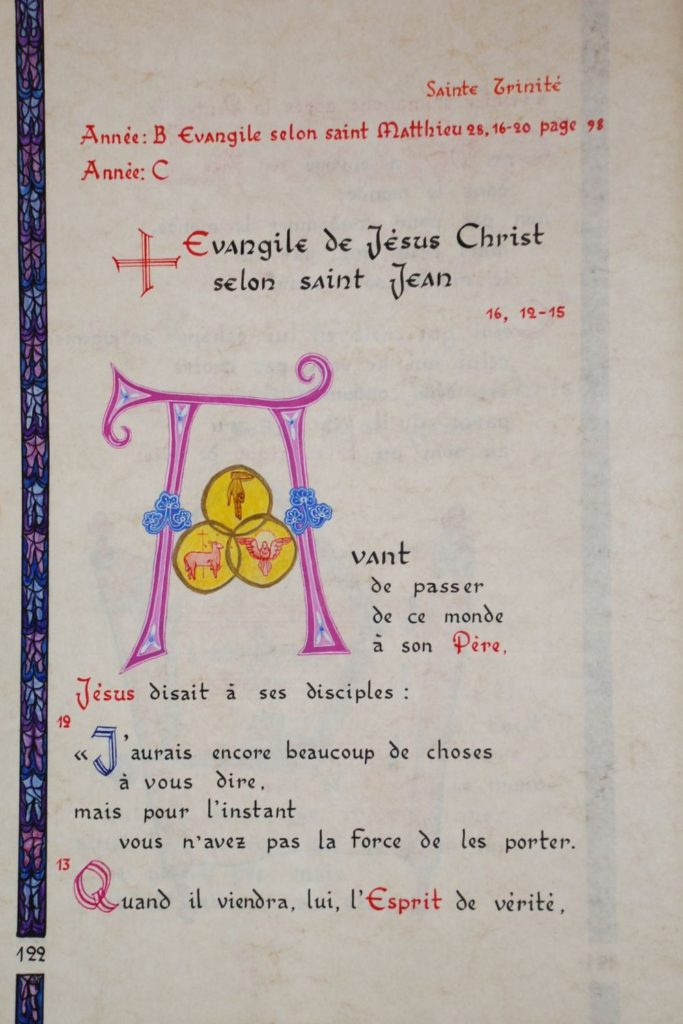 Sainte Trinité
Année: B Evangile selon saint Matthieu 28, 16-20 page 98
Année: C
Evangile de Jésus Christ
selon saint Jean
16, 12-15
Avant
de passer
de ce monde
à son Père,
Jésus disait à ses disciples :
12
« J'aurais encore beaucoup de choses
à vous dire,
mais pour l'instant
vous n'avez pas la force de les porter.
13
Quand il viendra, lui, l'Esprit de vérité,
122